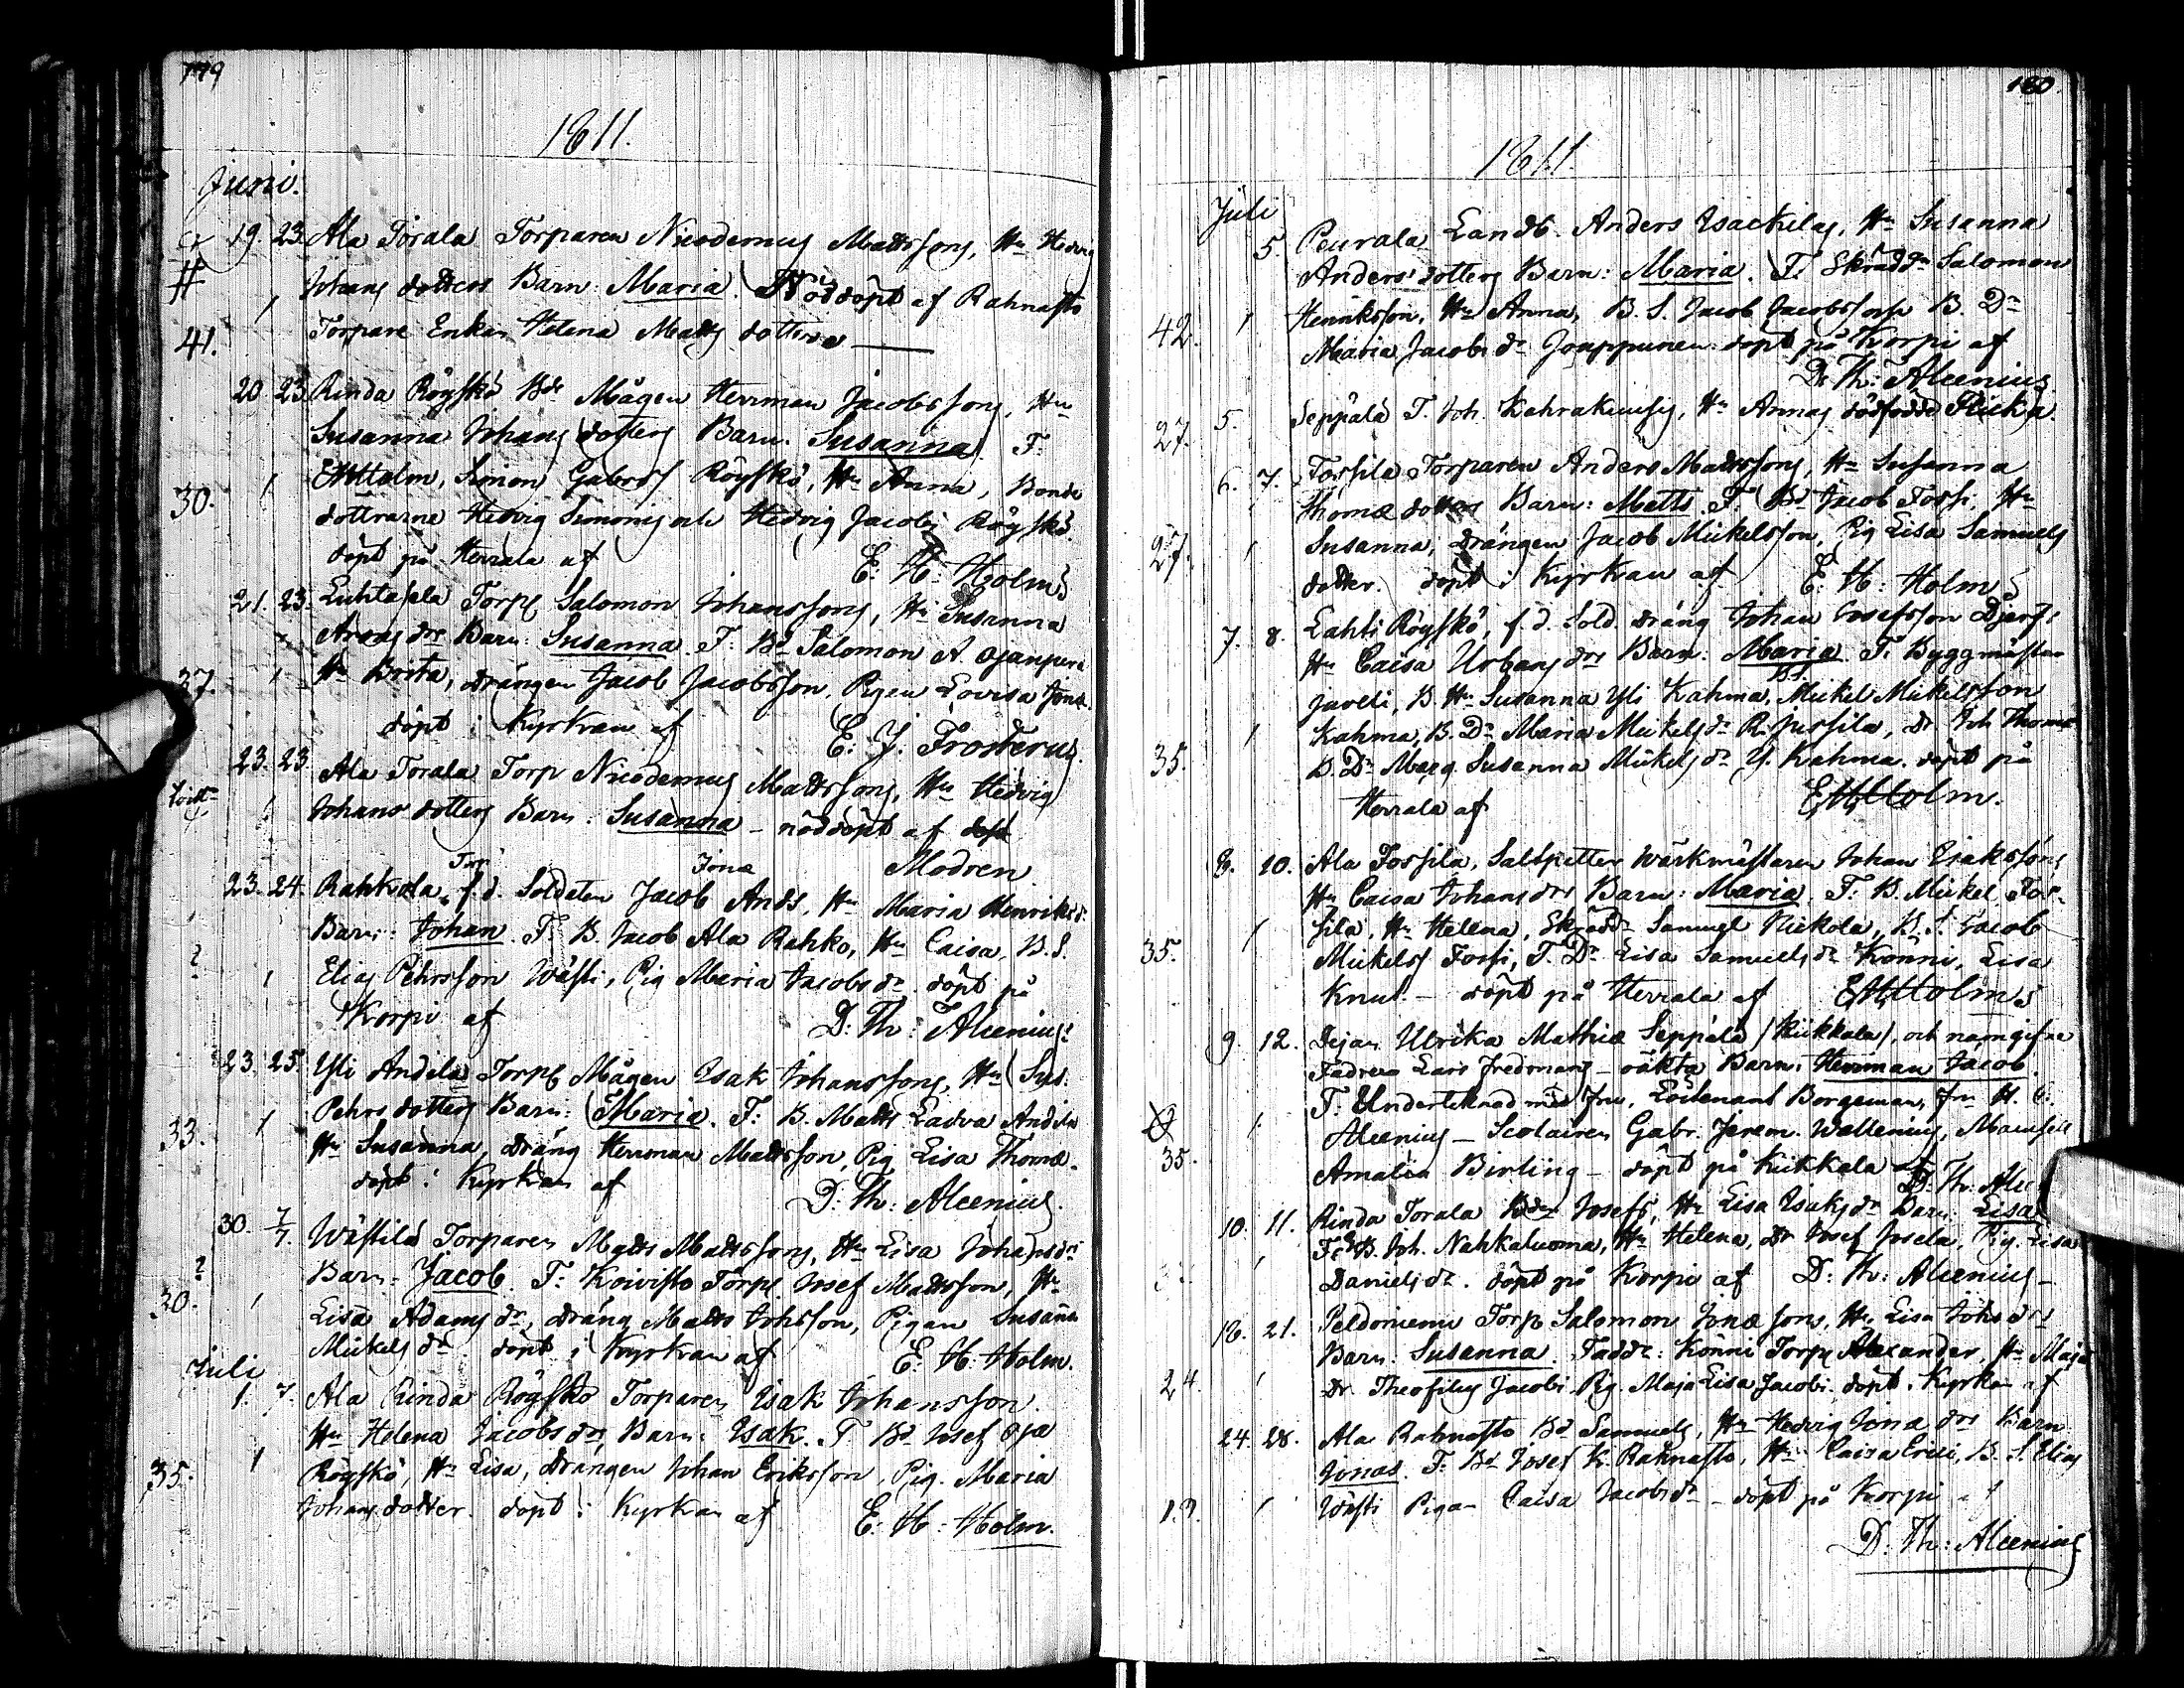 179
1811.
Juni.
19. 23. Ala Torala Torparen Nicodemus Mattssons, Hu Hedvig
#
Johans dotters Barn: Maria. Nöddöpt af Rahnasto
41. Torpare Enkan Helena Matts dotter
20 23 Rinda Röyskö Bde Mågen Herrman Jacobssons, Hu
Susanna Johans dotters Barn: Susanna F:
EHHolm, Simon Gabrs Röyskö, Hu Anna, Bonde
30. döttrarne Hedvig Simons och Hedvig Jacobs Röyskö.
döpt på Herrala af E: H: Holm
21. 23. Luhtasela Torp Salomon Johanssons, Hu Susanna
drs Barn: Susanna F: Bd Salomon A Ojanperä
37. Hu Brita, drängen Jacob Jacobsson, Pigen Lovisa Jonæ
döpt i Kyrkan af E: J. Frosterus.
23. 23. Ala Torala Torp Nicodemus Mattssons, Hu Hedvig
Johans dotters Barn: Susanna – nöddöpt af
Modren
23. 24. Rahkola, f.d. Soldaten Jacob Jonæ Ands, Hu Maria Henriksd:
Barn: Johan. F: B. Jacob Ala Rahko, Hu Caisa, B.S.
?
Elias Pehrsson Wästi, Pig Maria Jacobs dr döpt på
Korpi af D: Th: Alcenius
23. 25. Yli Andila Torp Mågen Isak Johanssons, Hu Sus:
Pehrs dotters Barn: Maria. F: B. Matts Ladva Andila
33. Hu Susanna, dräng Herrman Mattsson, Pig Lisa Thomæ.
döpt i Kyrkan af D: Th: Alcenius.
30. 7/7. Wästilä Torparen Matts Mattssons, Hu Lisa Johans drs
?
Barn: Jacob F: Koivisto Torp. Josef Mattsson, Hu
30. Lisa Adams dr, dräng Matts Johsson, Pigan Susanna
Mickels dr. döpt i Kyrkan af E: H: Holm.
Juli
1. 7. Ala Rinda Röyskö Torparen Isak Johansson.
Hu Helena Jacobs drs Barn: Isak. F Bd Josef Oja
35. Röyskö, Hu Lisa, drängen Johan Eriksson, Pig. Maria
Johans dotter. döpt i Kyrkan af E: H: Holm.
180
1811.
Juli
5. Peurala Landb. Anders Isackilas, Hu Susanna
Anders dotters Barn: Maria. F: Skrädd Salomon
42. Henriksson, Hu Anna, B. S. Jacob Jacobsson B. Dr
Maria Jacobs dr Jouppunen. döpt på Korpi af
D: Th: Alcenius
27. 5. Seppälä T. Joh. Kahrakuusis, Hu Annas dödfödde Flicka.
6. 7. Tossila Torparen Anders Mattssons, Hu Susanna
Thomæ dotters Barn: Matts F: Bd Jacob Tossi, Hu
27. Susanna, drängen Jacob Mickelsson, Pig Lisa Samuels
dotter. döpt i Kyrkan af E: H: Holm
7. 8. Lahti Röyskö, f.d. Sold. dräng Johan Josefsson Djerfs
Hu Caisa Urbans drs Barn: Maria F: Byggmästar
Javeli, B Hu Susanna Yli Kahma, BS. Mickel Mickelsson
Kahma, B. Dr Maria Mickels dr R. Jussila, dr Joh Thomæ
35. B. Dr Marg. Susanna Mickels dr Y. Kahma. döpt på
Herrala af EHHolm.
8. 10. Ala Tossila, Saltpetter Wärkmästaren Johan Isakssons
Hu Caisa Johans drs Barn: Maria. F: B. Mickel Tos-
sila, Hu Helena, Skrädd Samuel Nickola, B. S. Jacob
35. Mickels Tossi, T. Dr Lisa Samuels dr Könni, Lisa
Knut. – döpt på Herrala af EHHolm
9. 12. Dejan Ulrika Mathiæ Seppälä /Kiikkala/, och namgifne
Fadren Lars Fredmans – oäkta Barn: Herrman Jacob.
F: Underteknad med Fru, Löitenant Borgeman, Fru H. C.
Alcenius – Scolairen Gabr. Jerem. Wallenius, Mamsell
35. Amalia Birling – döpt på Kiikkala af D: Th: Alc
10. 11. Rinda Torala Josefs, Hu Lisa Isaks dr Barn Lisa
F: B. Joh. Nahkaluoma, Hu Helena, Dr Josef Josela, Pig. Lisa
Daniels dr. döpt på Korpi af D: Th: Alcenius –
18. 21. Peldoniemi Torp Salomon Jonæ sons, Hu Lisa Johs drs
Barn: Susanna. Faddr: Könni Torp Alexander, Hu Maja
24. Dr. Theofilus Jacobi Pig. Maja Lisa Jacobi. döpt i Kyrkan af
24. 28. Ala Rahnasto Bd Samuels, Hu Hedvig Jonæ drs Barn
Jonas. F: Bd Josef K. Rahnasto, Hu Caisa, B. S. Elias
Wästi Pigan Caisa Jacobs dr – döpt på Korpi af
D: Th: Alcenius